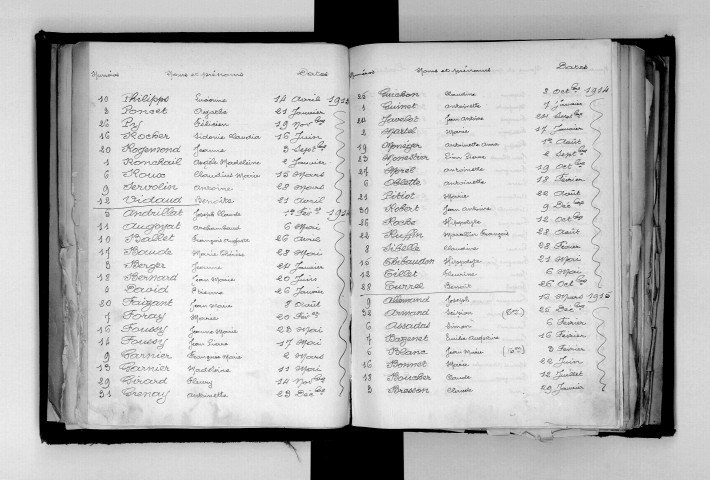 Numéros Noms et prénoms Dates
10 Philipps 14 Avril 1912
2 Poncet Agathe 21 Janvier
26 Py 19 Nov
16 Rocher Sidonie Claudia 16 Juin
20 Rozemond Jeanne 3 Sept
1 Ronchail Madeleine 2 Janvier
6 Roux Claudius Marie 15 Mars
9 Servolin Antoine 28 Mars
12 Vidaud Benoîte 21 Avril
5 Andrillat Joseph Claude 1er Fév 1914
11 Augoyat 6 Mai
10 Baillet François Auguste 26 Avril
17 Baude Marie 28 Mai
3 Berger Jeanne 24 Janvier
18 Bernard Jean Marie 20 Juin
4 David Etienne 26 Janvier
20 Faigant Jean Marie 8 Août
7 Foray Marie 20 Fév
16 Foussy Jeanne Marie 23 Mai
14 Foussy Jean Pierre 17 Mai
9 Garnier François Marie 2 Mars
13 Garnier Madeleine 11 Mai
29 Girard Fleury 14 Nov
31 Grenay Antoinette 23 Déc
Numéros Noms et prénoms Dates
25 Guichon Claudine 2 Oct 1914
1 Guinet Antoinette 7 Janvier
24 Javelot Jean Antoine 24 Sept
2 Martel Marie 17 Janvier
19 Antoinette 1er Août
23 Monestier Pierre 2 Sept
27 Morel Antoinette 19 Oct
6 Oblette Antoinette 18 Février
21 Marie 22 Août
30 Robert Jean Antoine 9 Déc
26 Roche Hippolyte 12 Oct
22 Ruffin François 28 Août
8 Sibelle Claudine 23 Février
15 Thibaudon Hippolyte 21 Mai
12 Tillet Claudine 6 Mai
28 Turrel Benoit 26 Oct
9 Allemand Joseph 15 Mars 1916
32 Armand 25 Déc
6 Assadas Simon 6 Février
7 Bazenet 16 Février
5 Blanc Jean Marie 3 Février
16 Bonnet Marie 22 Juin
18 Boircher Claude 12 Juillet
3 Bresson Claude 29 Janvier